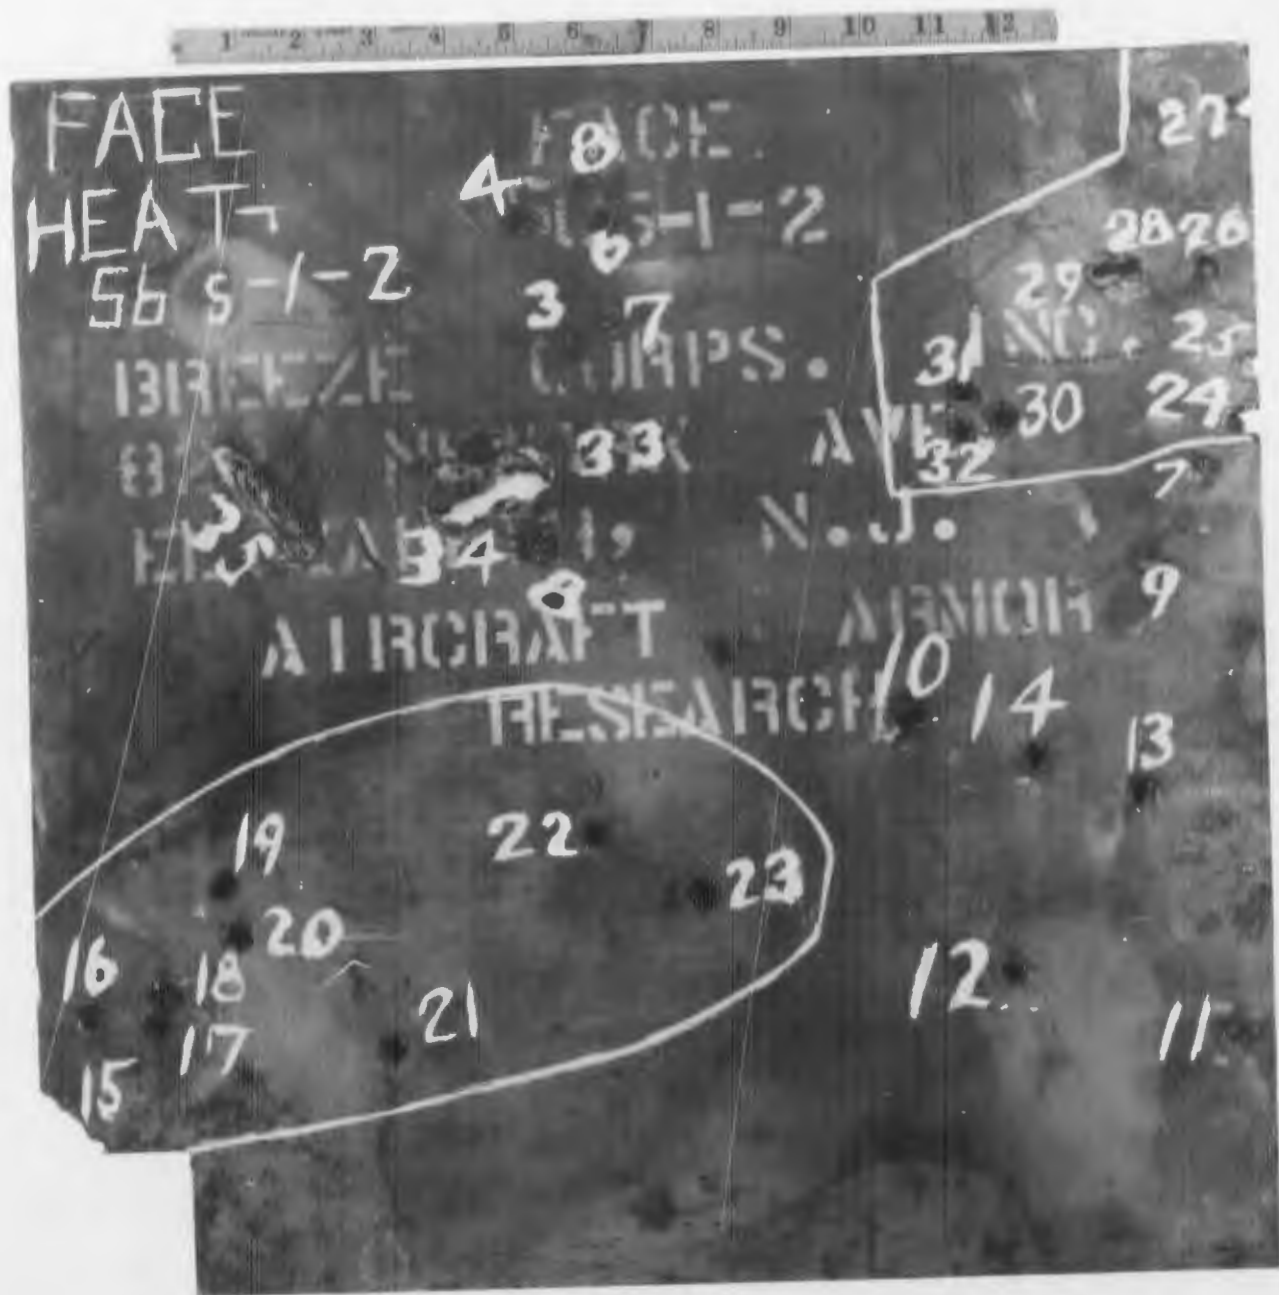 1 2 3 4 5 6 7 8 9 10 11 12
FACE
HEAT
56 S-1-2
FACE
S-1-2
BREEZE CORPS. INC.
AVE
N.J.
AIRCRAFT ARMOR
RESEARCH
4 8
6
3 7
27
28 26
29
25
31
30 24
32
33
7
34
9
10
14
13
19
22
23
20
16
18
12
21
17
11
15